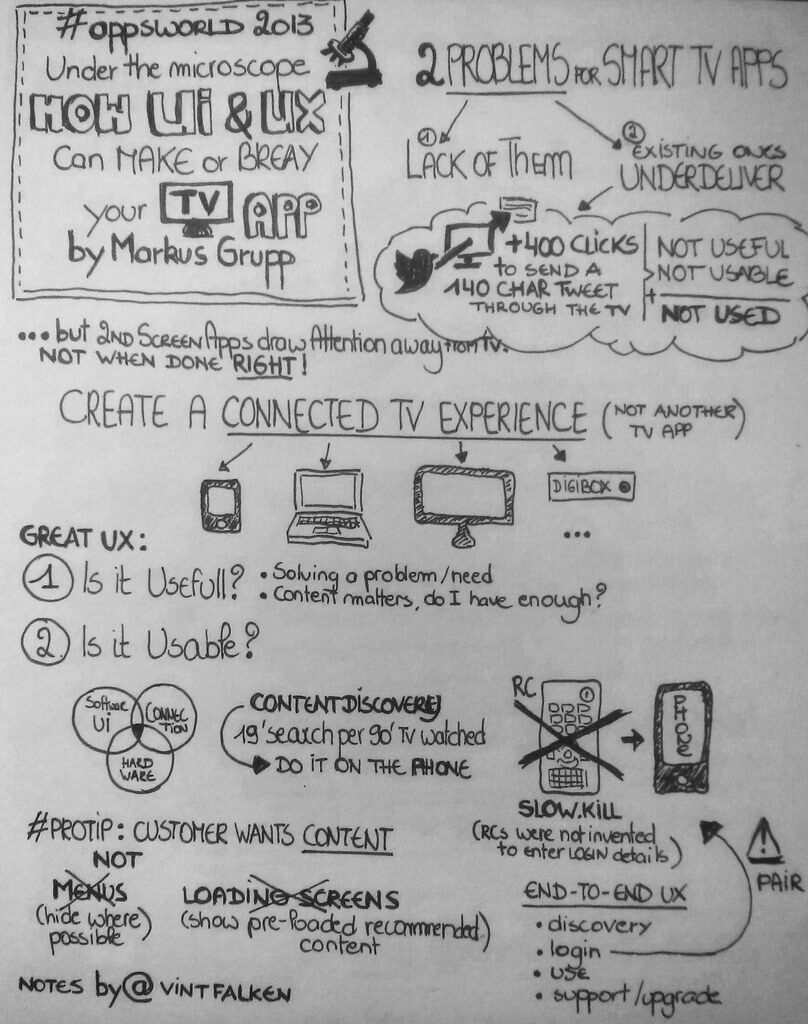 #appsworld 2013
Under the microscope
HOW Ui & UX
Can MAKE or BREAY
your TV APP
by Markus Grupp
2 PROBLEMS FOR SMART TV APPS
1
LACK OF THEM
2
EXISTING ONES
UNDERDELIVER
+400 CLICKS
to SEND A
140 CHAR TWEET
THROUGH THE TV
NOT USEFUL
NOT USABLE
+
NOT USED
...but 2ND SCREEN Apps draw Attention away from tv.
NOT WHEN DONE RIGHT!
CREATE A CONNECTED TV EXPERIENCE (NOT ANOTHER
TV APP)
DIGIBOX
...
GREAT UX:
1 Is it Usefull?
• Solving a problem/need
• Content matters, do I have enough?
2 Is it Usable?
Software
Ui
CONNEC
TION
HARD
WARE
CONTENT DISCOVERY
19' search per 90' TV watched
DO IT ON THE PHONE
RC
PHONE
SLOW. KILL
(RCs were not invented
to enter LOGIN details)
! PAIR
#PROTIP: CUSTOMER WANTS CONTENT
NOT
MENUS
(hide where
possible)
LOADING SCREENS
(show pre-loaded recommended
content)
END-TO-END UX
• discovery
• login
• USE
• support/upgrade
NOTES by @VINTFALKEN